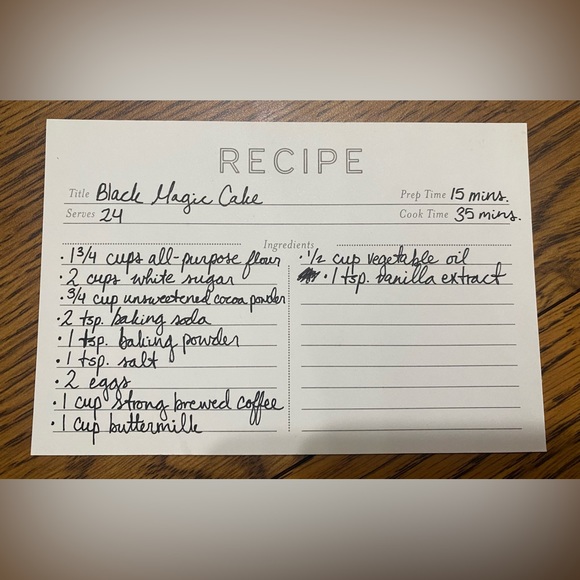 RECIPE
Title Black Magic Cake Prep Time 15 mins.
Serves 24 Cook Time 35 mins.
Ingredients
· 1 3/4 cups all-purpose flour
· 2 cups white sugar
· 3/4 cup unsweetened cocoa powder
· 2 tsp. baking soda
· 1 tsp. baking powder
· 1 tsp. salt
· 2 eggs
· 1 cup strong brewed coffee
· 1 cup buttermilk
· 1/2 cup vegetable oil
· 1 tsp. vanilla extract